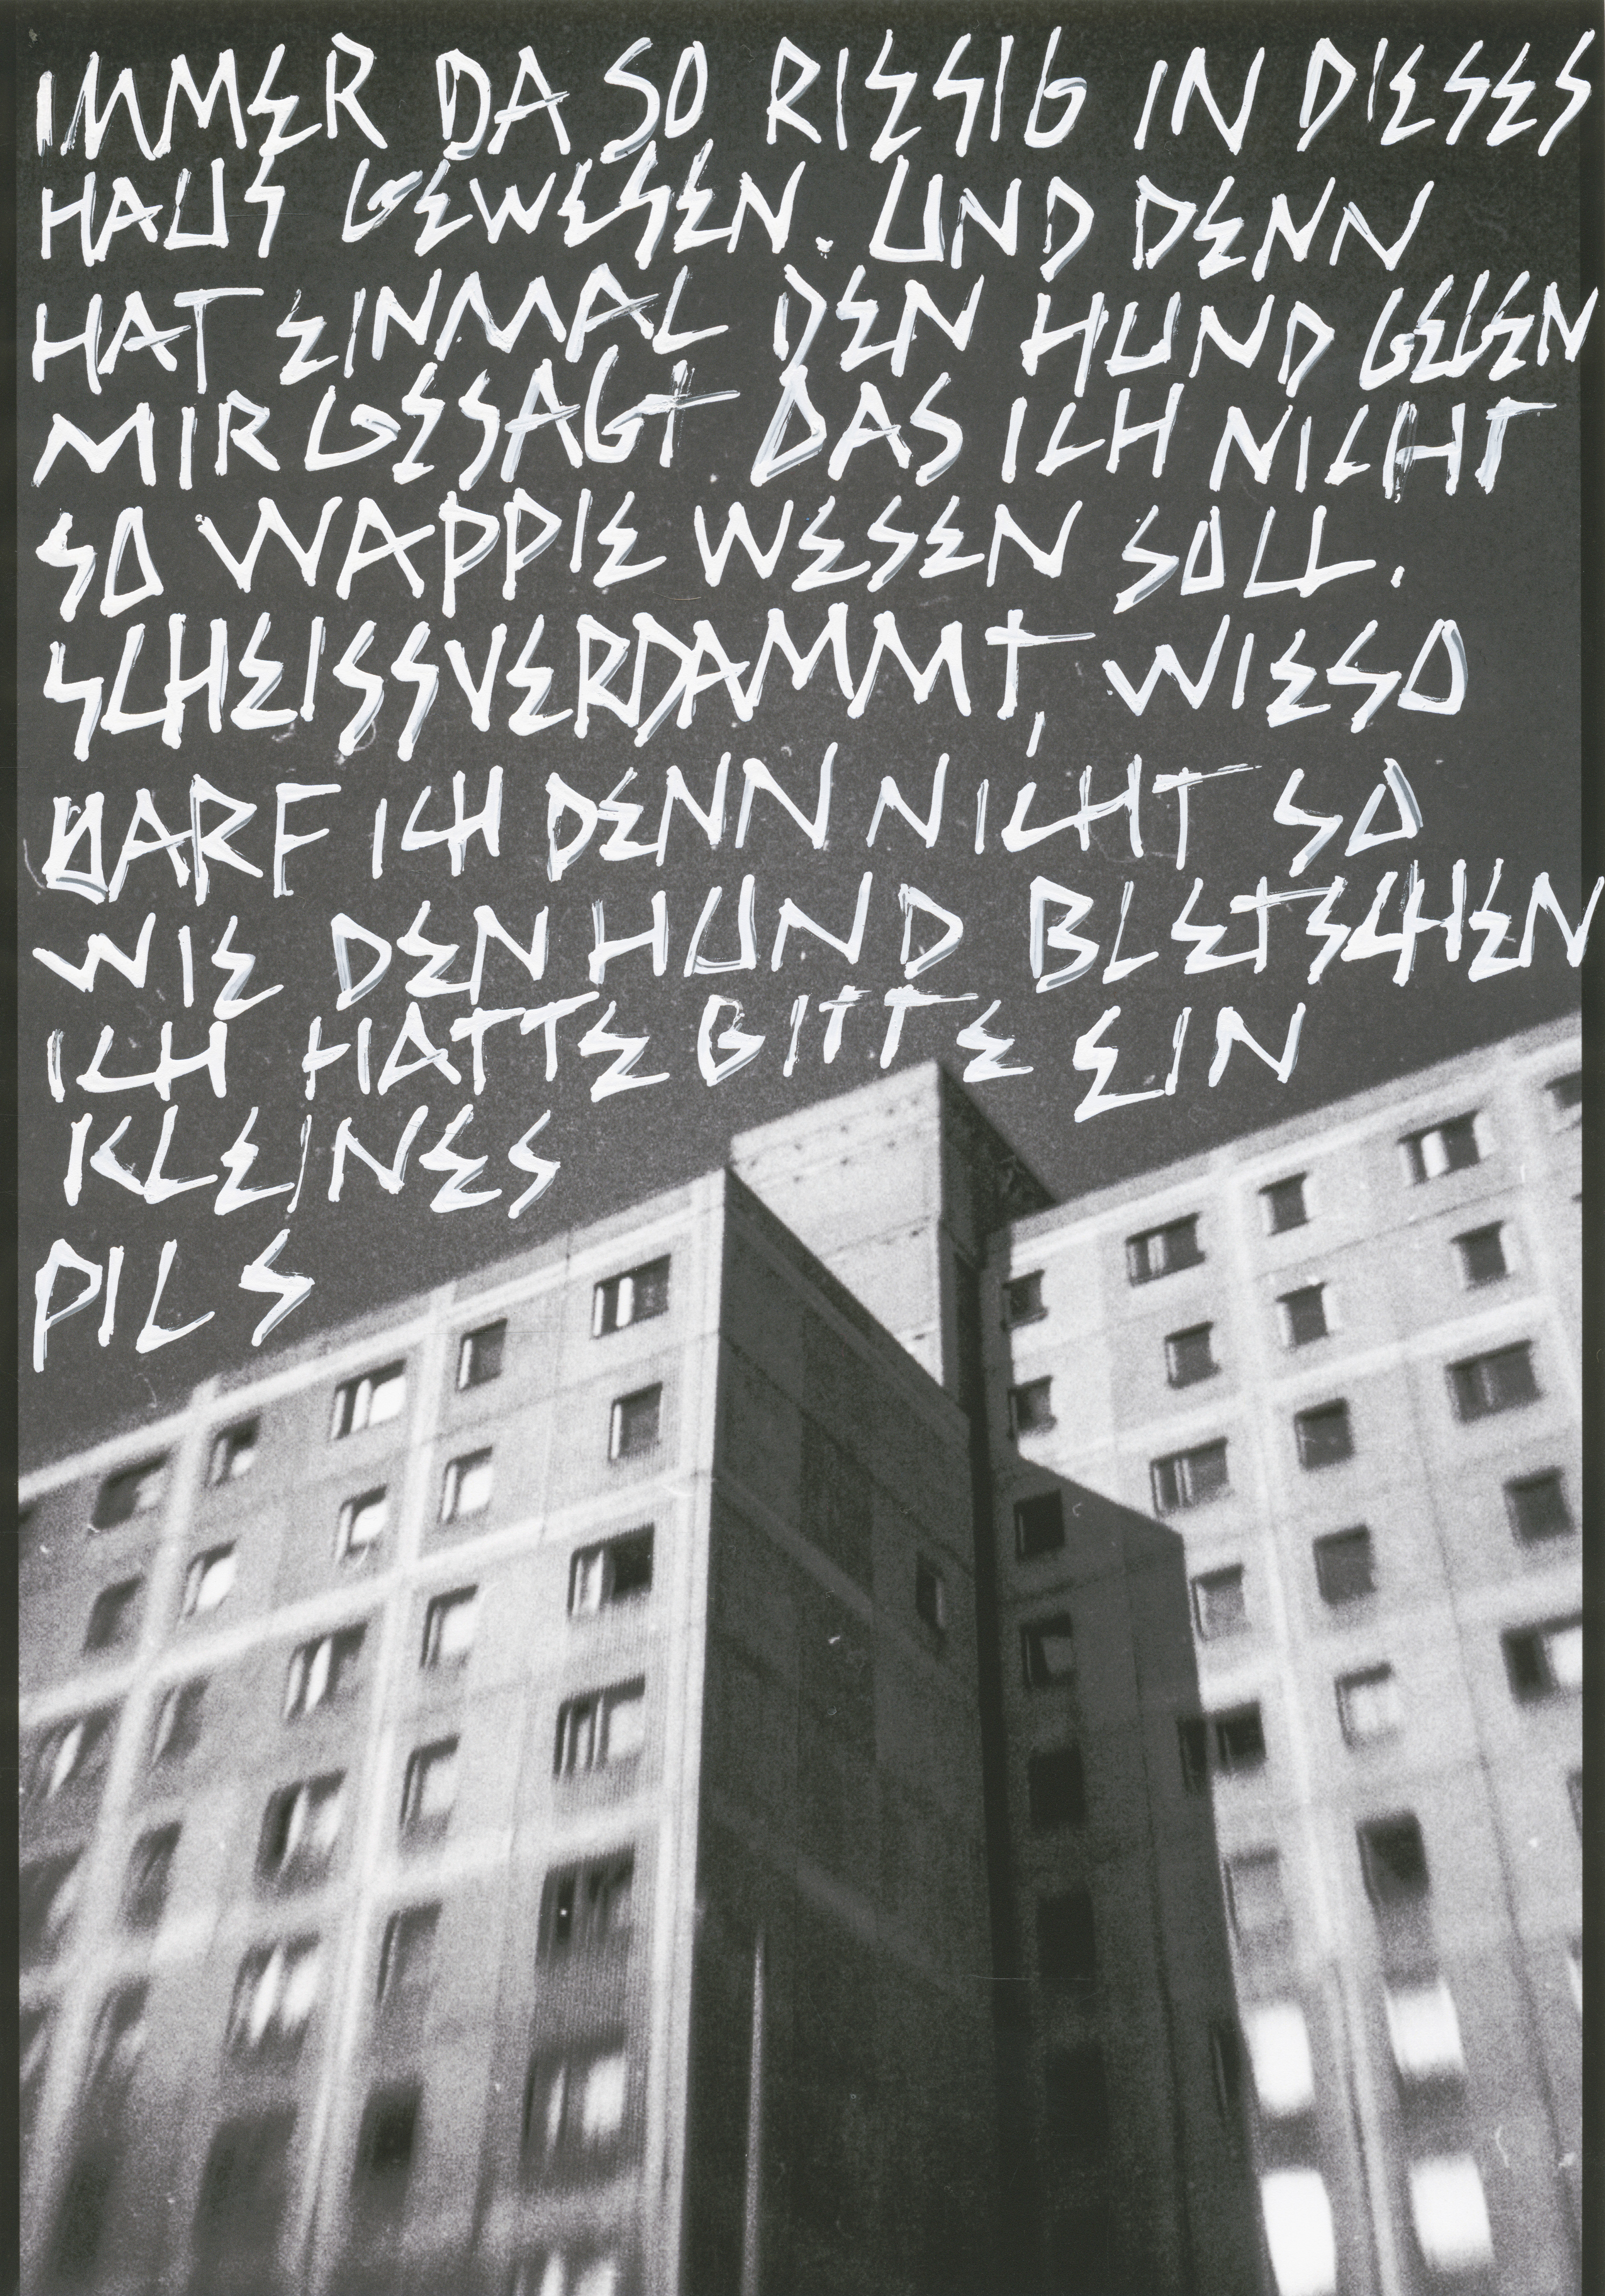 IMMER DA SO RIESIG IN DIESES
HAUS GEWESEN. UND DENN
HAT EINMAL DEN HUND GEGEN
MIR GESAGT DAS ICH NICHT
SO WAPPIE WESEN SOLL.
SCHEISSVERDAMMT, WIESO
DARF ICH DENN NICHT SO
WIE DEN HUND BLETSCHEN
ICH HATTE BITTE EIN
KLEINES
PILS